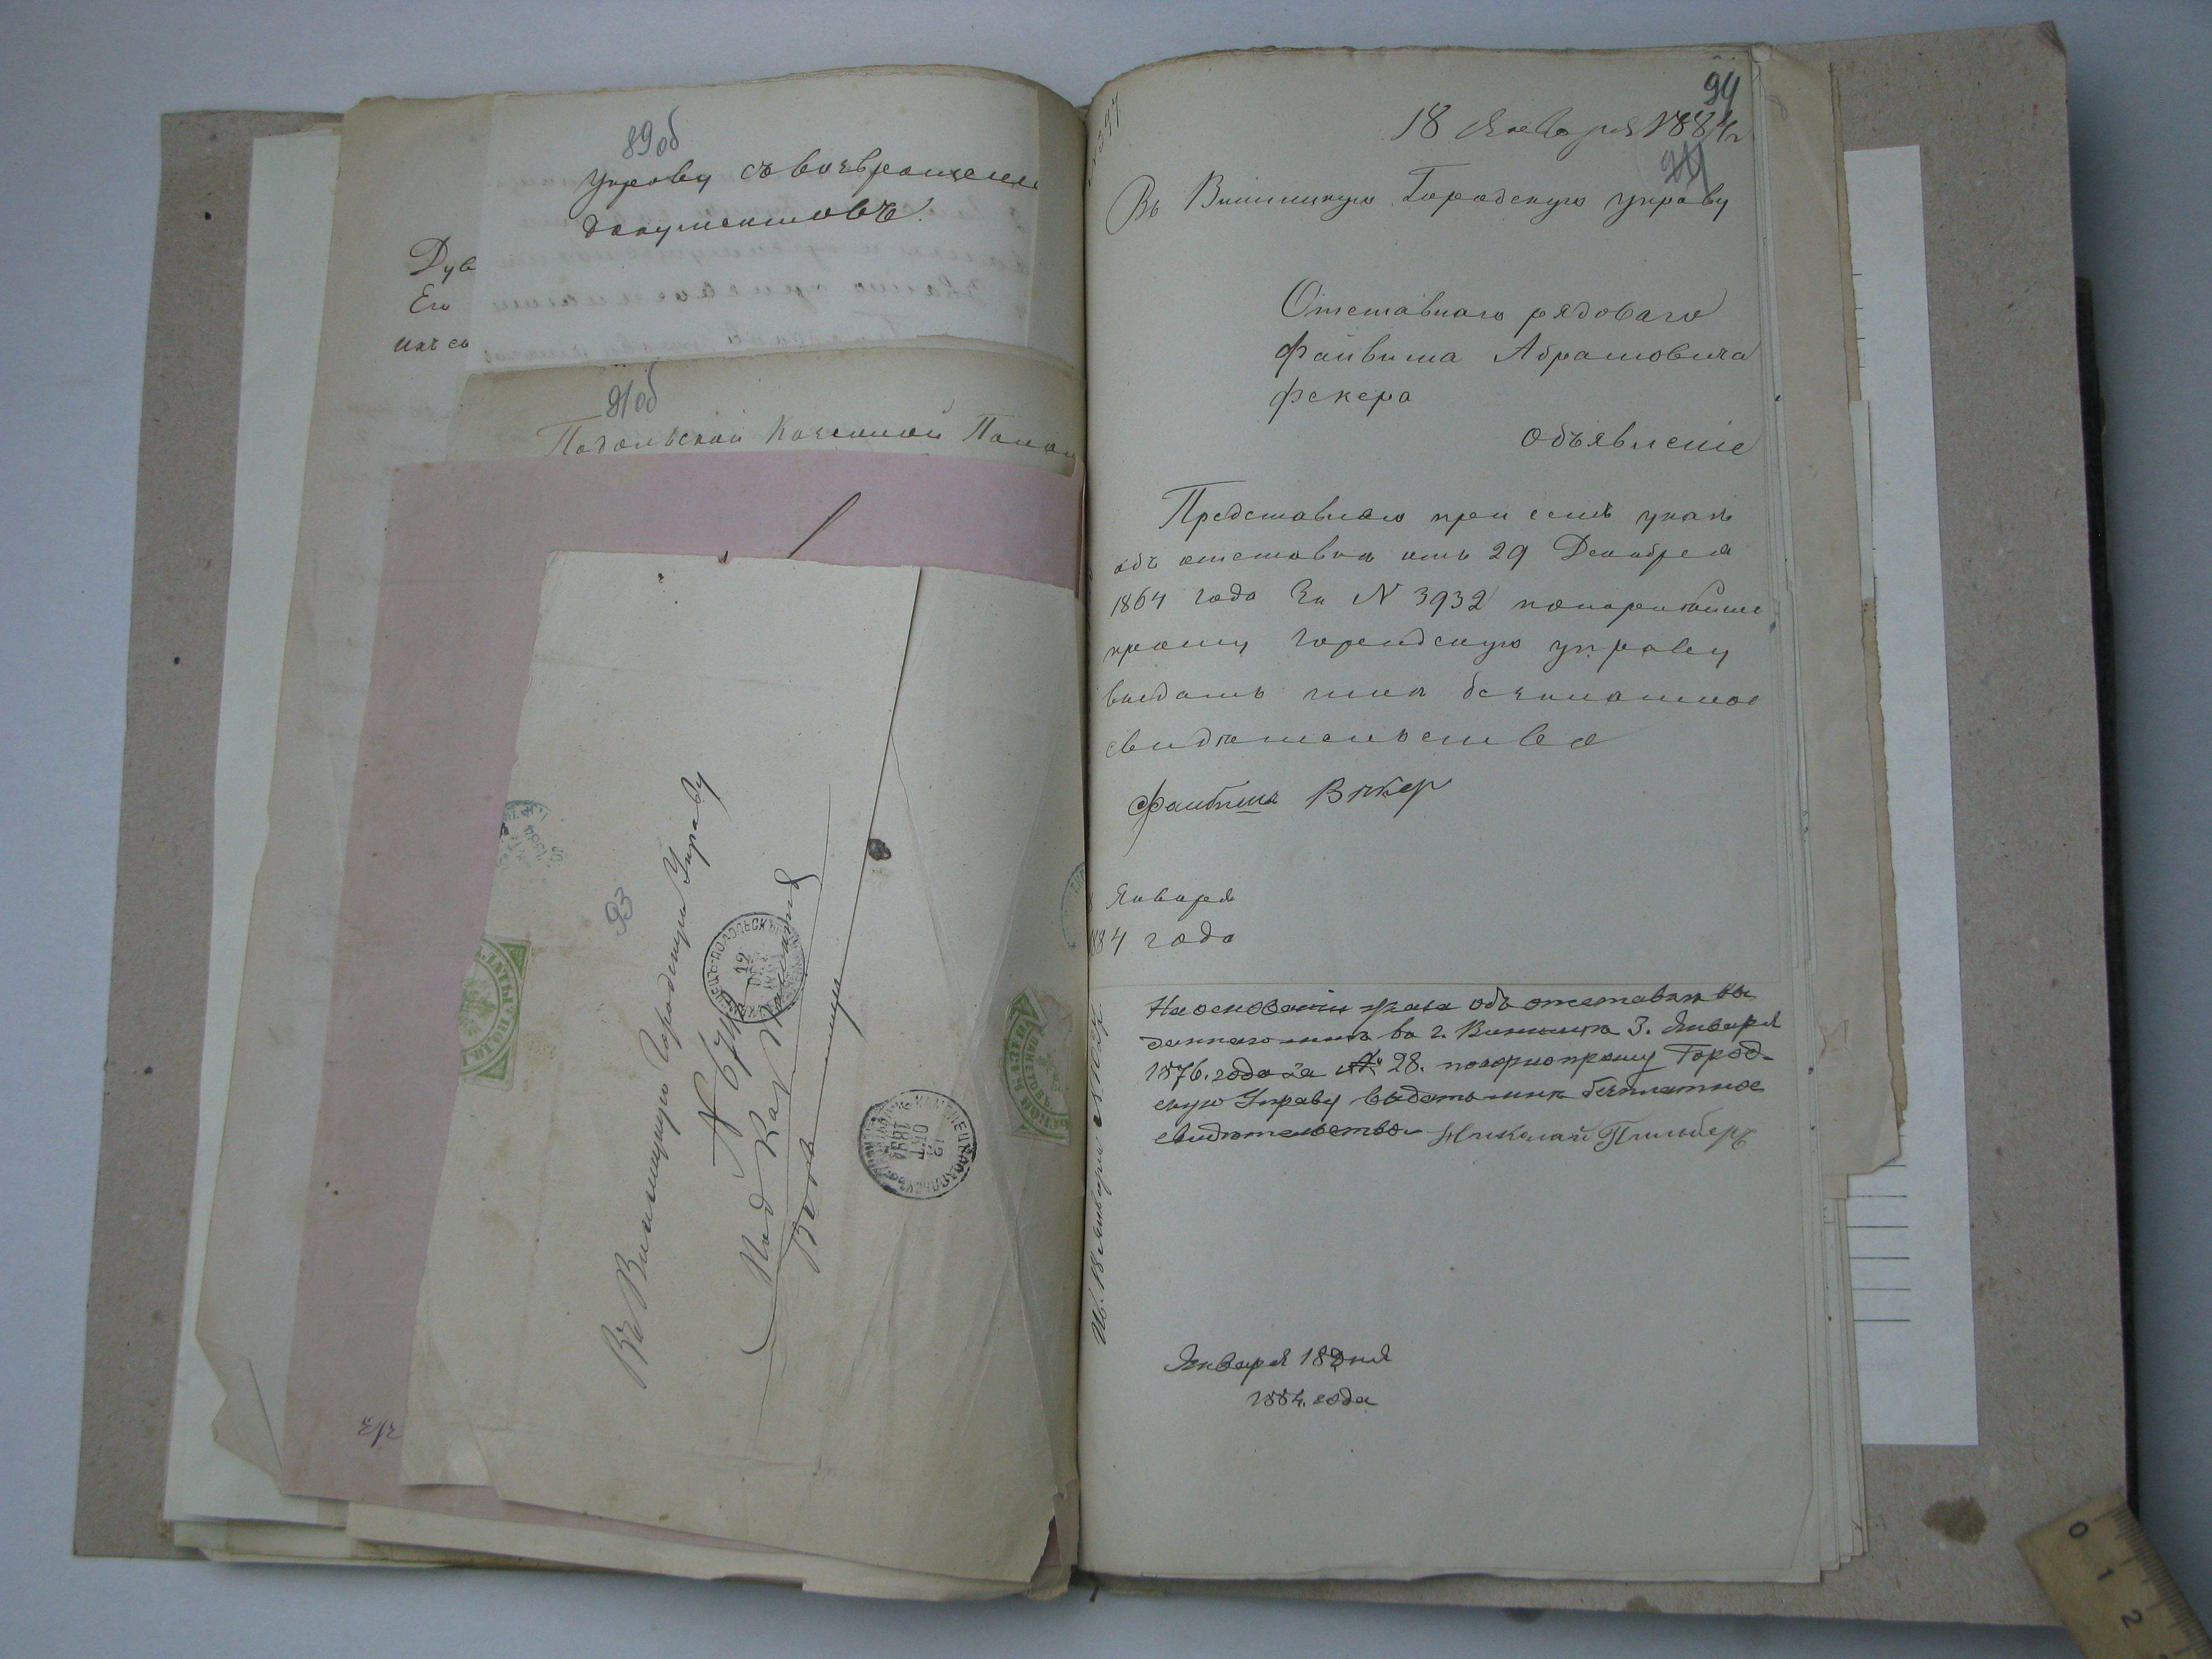 89об
Управу съ возвращеніем
документовъ.
Дув
Его
ихъ со
91об
Подольской Казенной Палат
93
Въ Винницкую Городскую Управу
№ 67
Под Каз Палата
Винница
12
ОКТ
1884
94
18 Января 1884 г
Въ Винницкую Городскую управу
Отставного рядоваго
Файвиша Абрамовича
Фекера
Объявленіе
Представляю при семъ указъ
объ отставки отъ 29 Декабря
1864 года За N 3932 покорнѣйше
прошу Городскую управу
выдать мнѣ безплатное
свидѣтельство
Января
84 года
На основаніи указа объ отставки вы
даннаго мнѣ въ г. Винницѣ 3. Января
1876. года за № 28. покорно прошу Город-
скую Управу выдать мнѣ безплатное
свидѣтельство Николай
Января 18 дня
1884. года
0 1 2